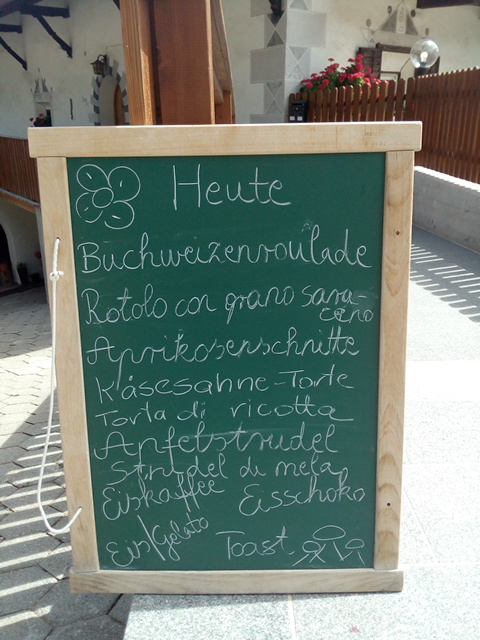 Heute
Buchweizenroulade
Rotolo con grano sara-
ceno
Aprikosenschnitte
Käsesahne-Torte
Torta di ricotta
Apfelstrudel
Strudel di mela
Eiskaffee Eisschoko
Eis/Gelato Toast